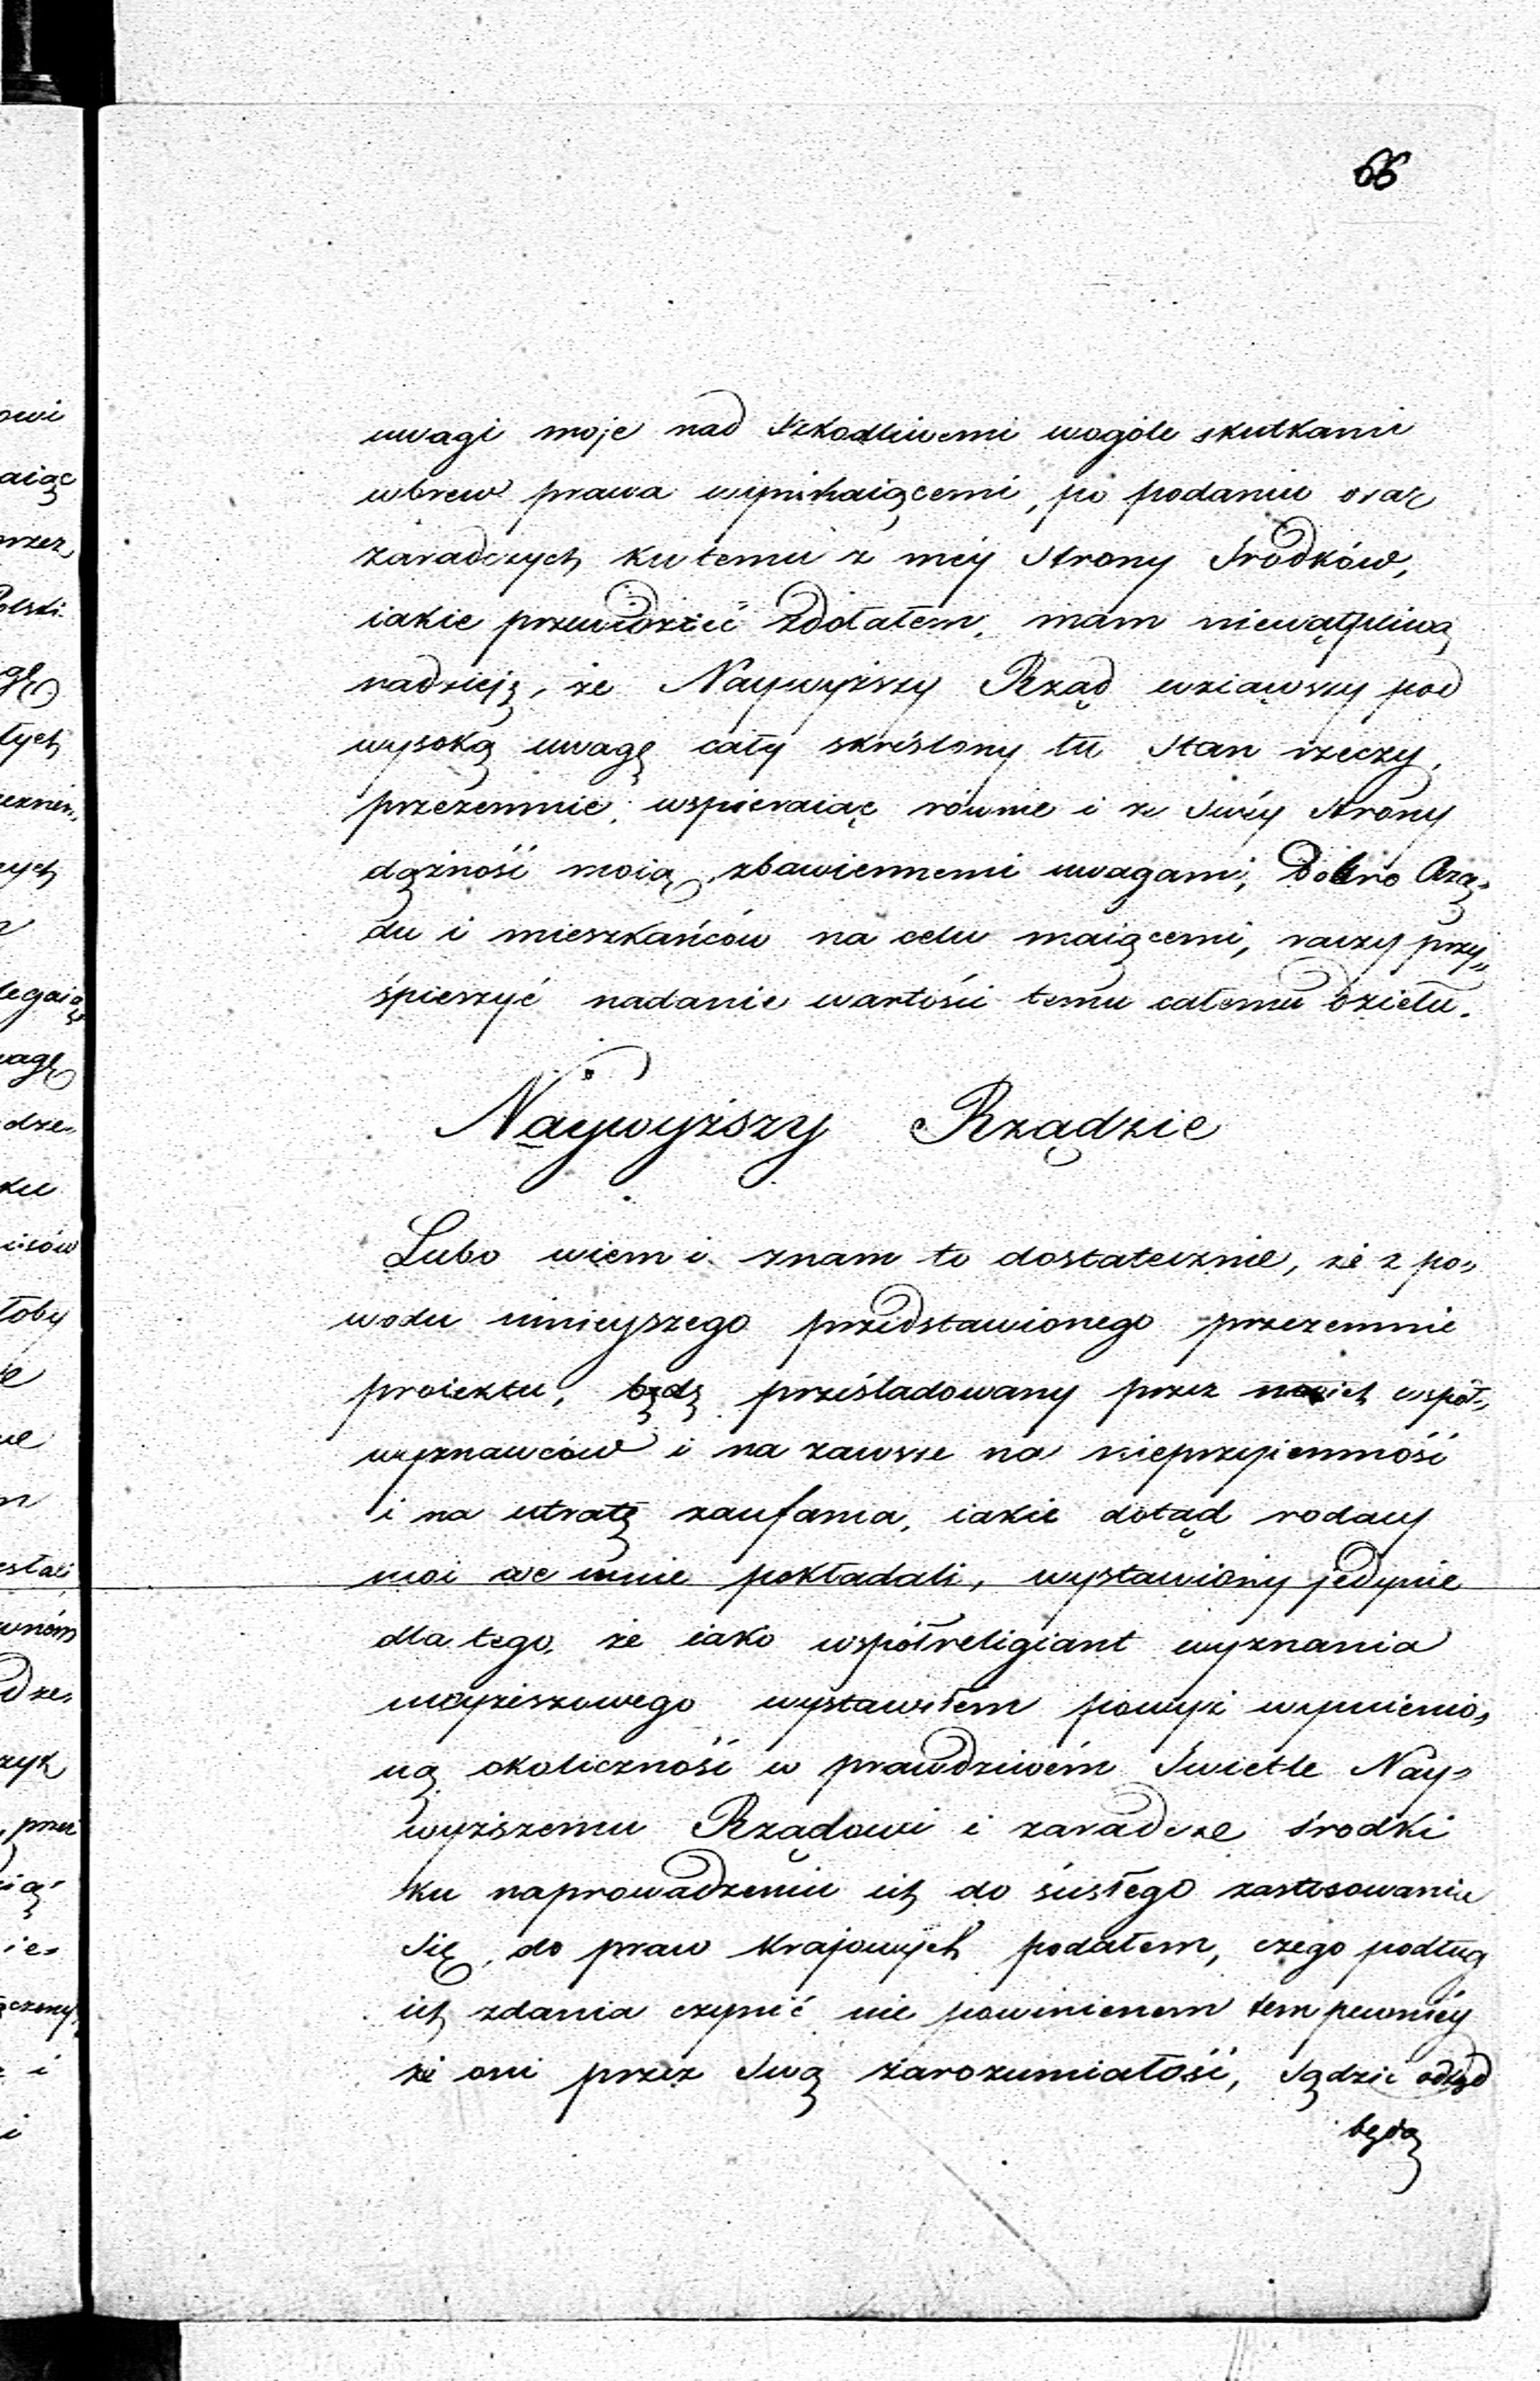 66
uwagi moje nad szkodliwemi wogóle skutkami
wbrew prawa wynikaiącemi, po podaniu oraz
zaradczych ku temu z mey strony środków,
iakie przewidzieć zdołałem, mam niewątpliwą
nadzieję, że Naywyższy Rząd wziąwszy pod
wysoką uwagę cały skréslony tu stan rzeczy,
przezemnie, wspieraiąc równie i ze swéy strony
dążność moią, zbawiennemi uwagami, Dobro Rzą„
du i mieszkańców na celu maiącemi, raczy przy„
śpieszyć nadanie wartości temu całemu dziełu.
Naywyższy Rządzie
Lubo wiem i znam to dostatecznie, że z po„
wodu ninieyszego przedstawionego przezemnie
proiektu, będę prześladowany przez moich współ„
wyznawców i na zawsze na nieprzyiemność
i na utratę zaufania, iakie dotąd rodacy
moi we mnie pokładali, wystawiony jedynie
dla tego, że iako współreligiant wyznania
moyżeszowego wystawiłem powyż wymienio„
ną okoliczność w prawdziwém świetle Nay„
wyższemu Rządowi i zaradcze środki
ku naprowadzeniu ich do ścisłego zastosowania
się do praw krajowych podałem, czego podług
ich zdania czynić nie powinienem tem pewniéy
że oni przez swą zarozumiałość, sądzić odtąd
będą
owi
aiąc
przez
Polski
łych
ych
legaią
wagę
dze„
ku
isów
łoby
stali
dze„
zyk
przez
ią
ie„
i
i